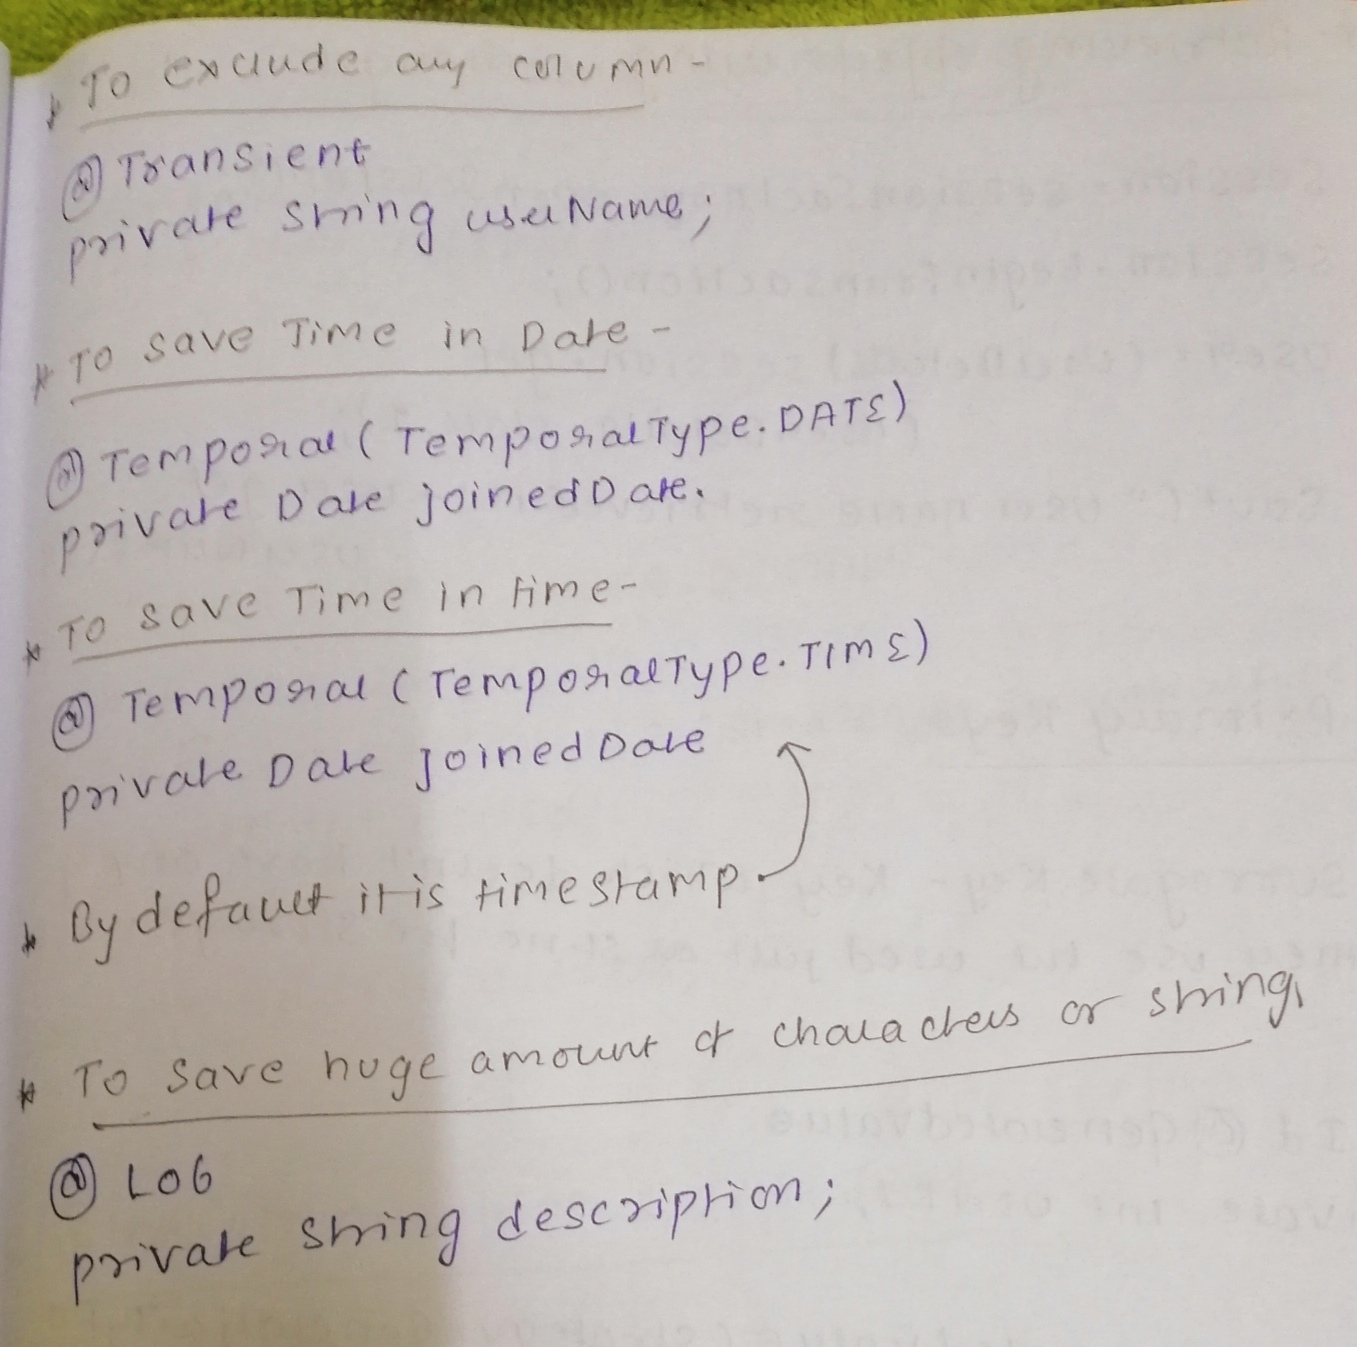 * To exclude any column -
@Transient
private String userName;
* To save Time in Date -
@Temporal (TemporalType.DATE)
private Date joinedDate.
* To save Time in time -
@Temporal (TemporalType.TIME)
private Date JoinedDate
* By default it is timestamp
* To save huge amount of characters or string,
@LOb
private String description;